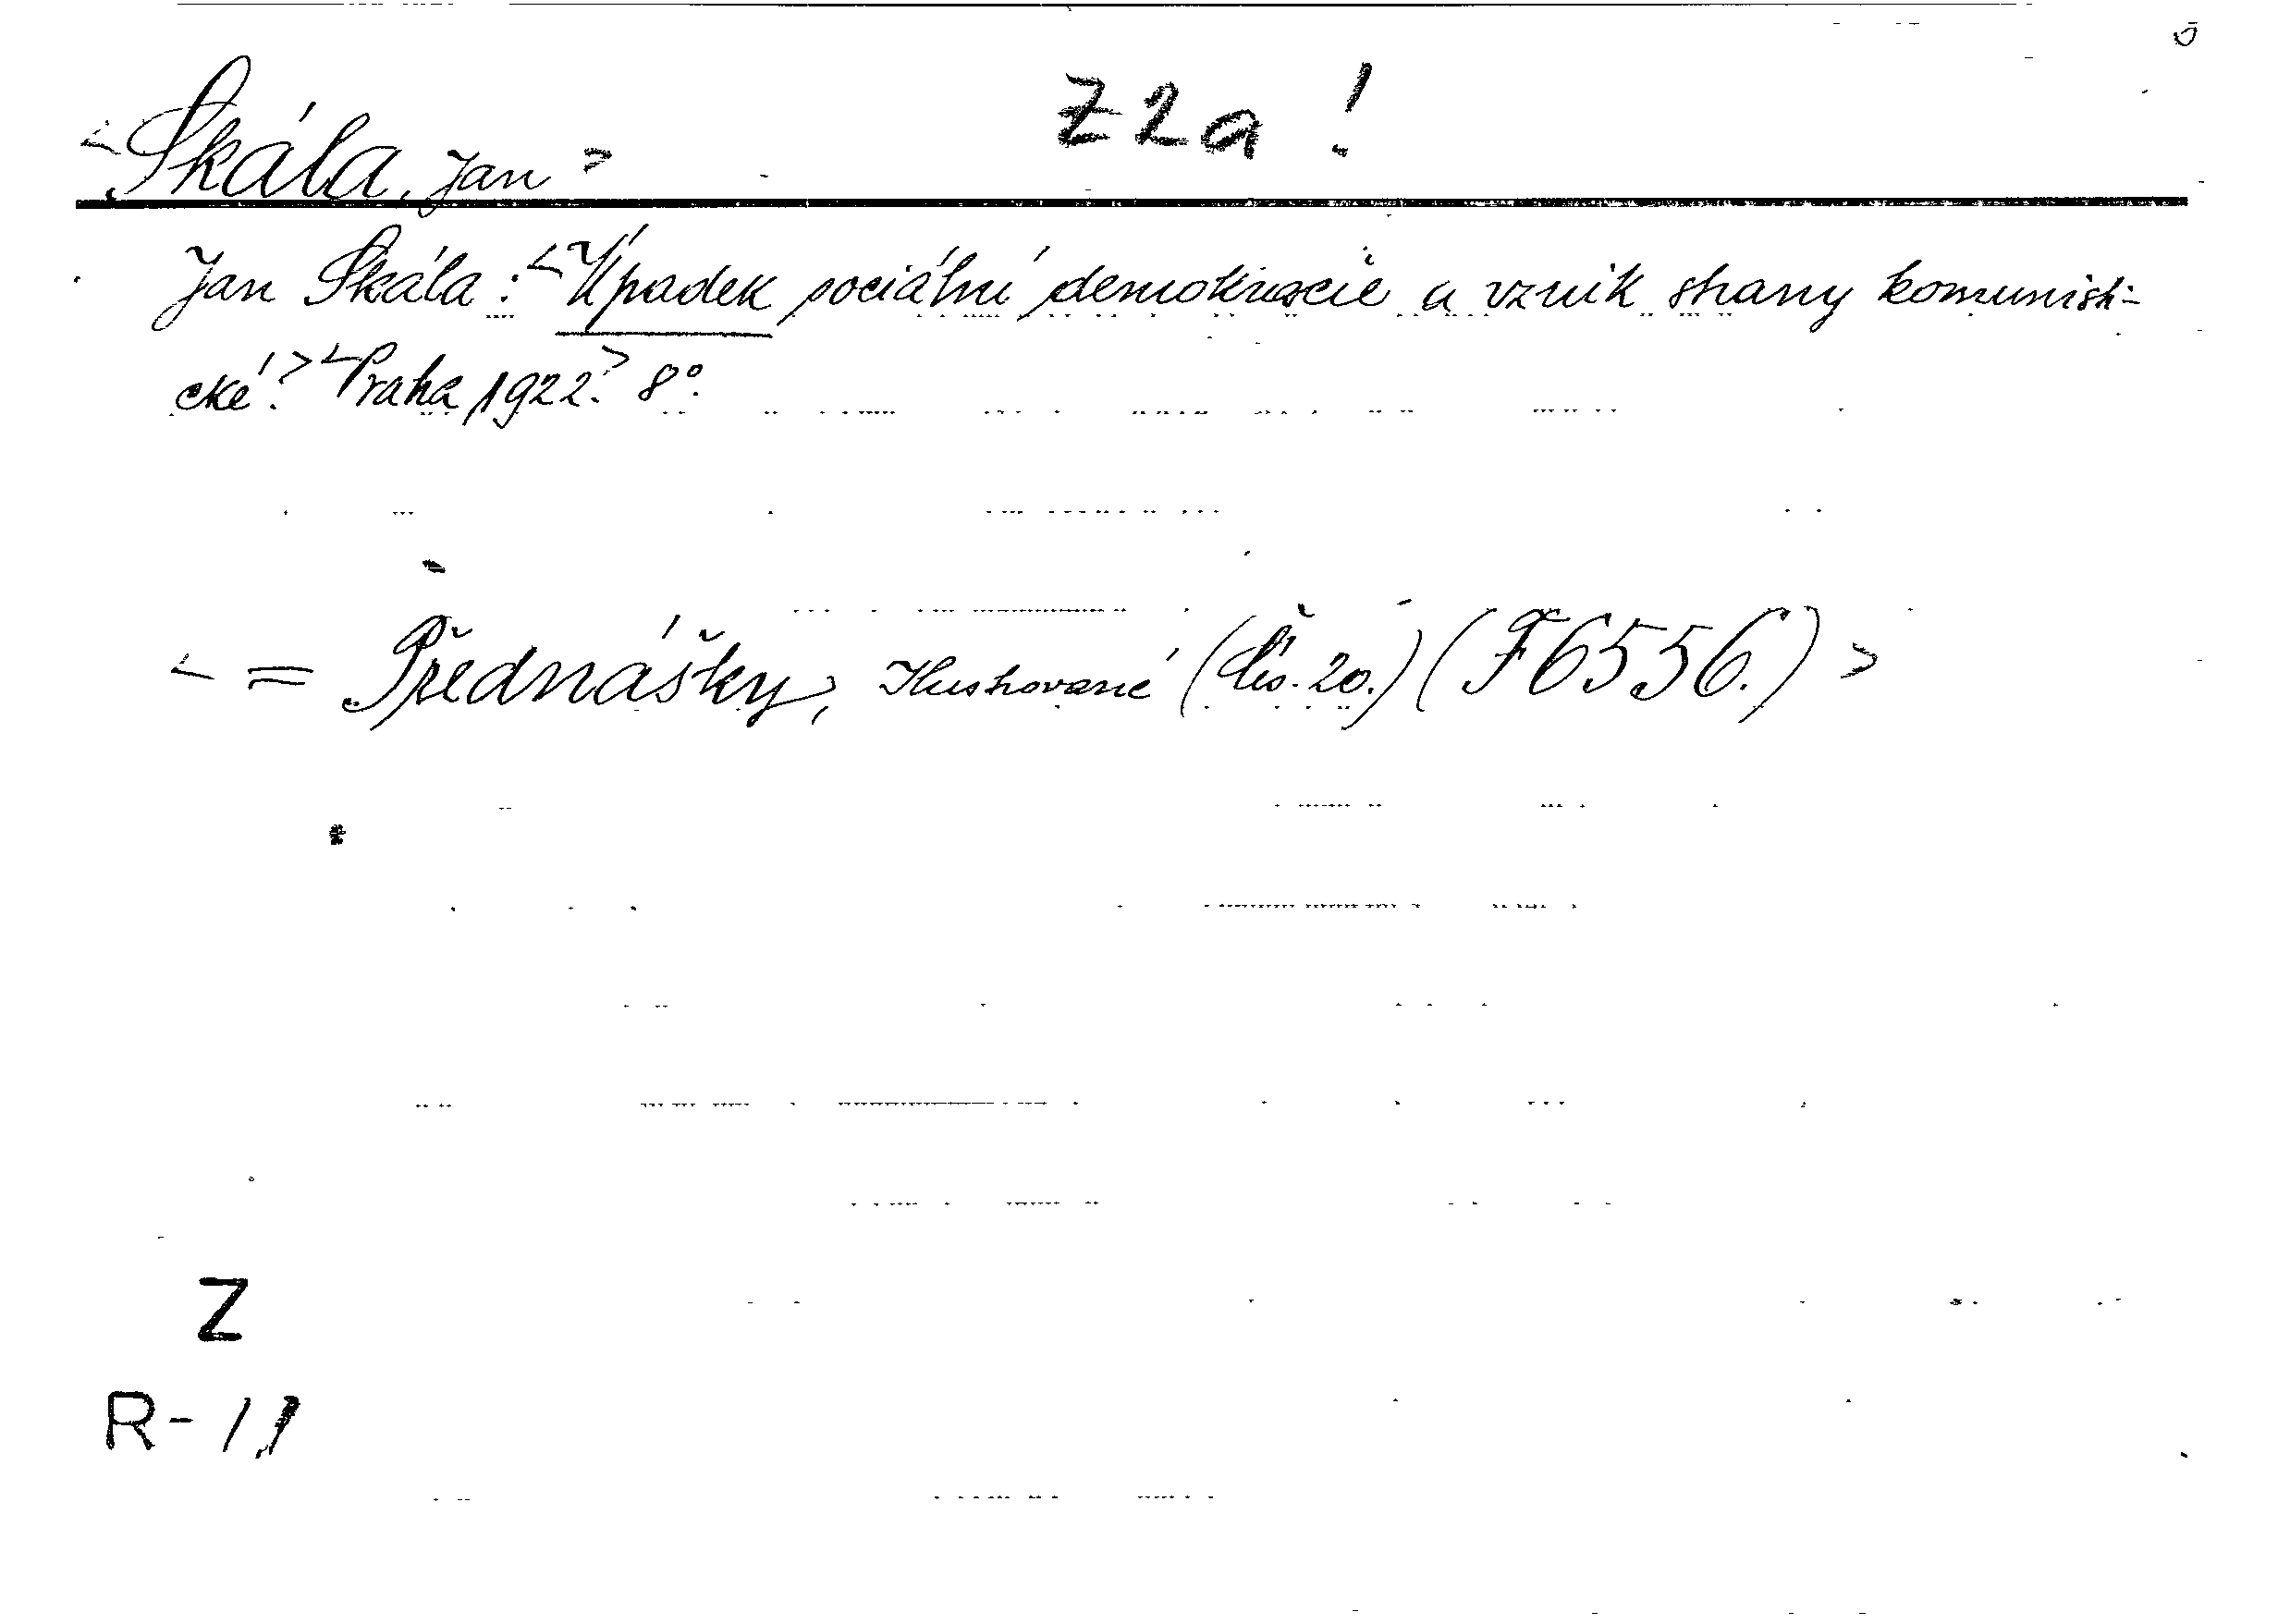 Z2a!
<Skála, Jan>
Jan Skála: <Úpadek sociální demokracie a vznik strany komunisti-
cké.> <Praha, 1922.> 8°.
< = Přednášky, Ilustrované (Čís. 20.) (F 6556.) >
Z
R-11